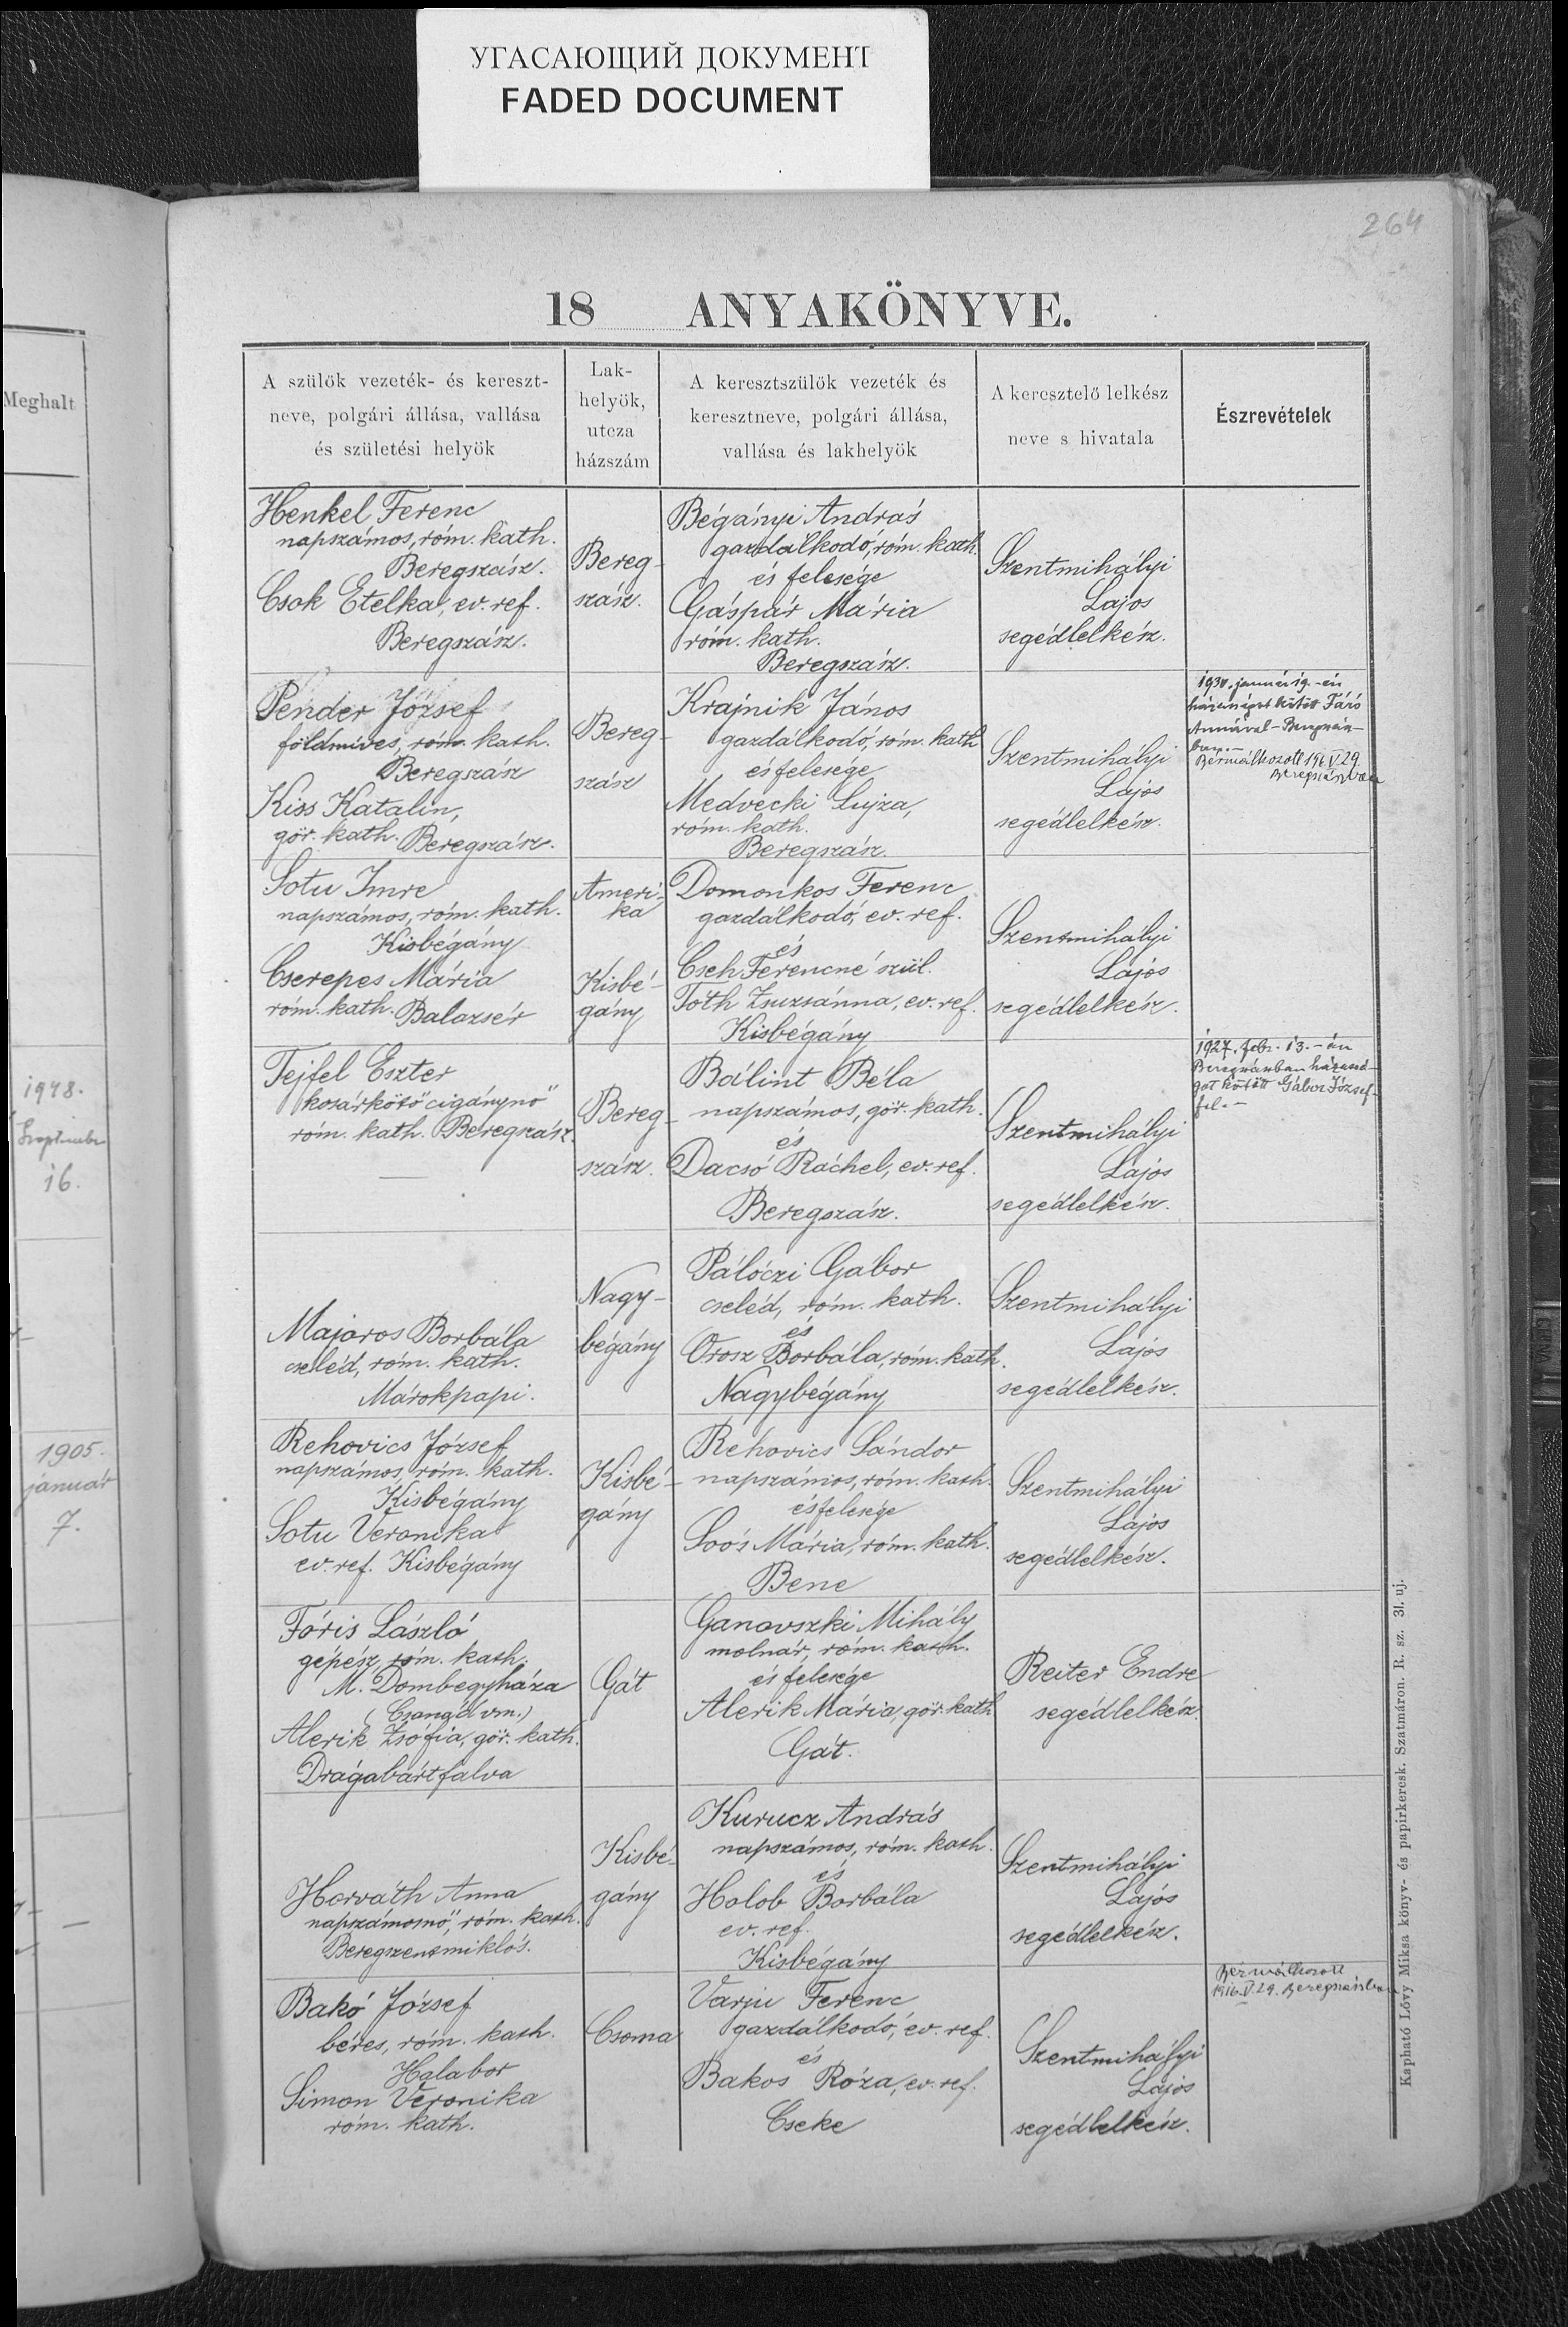 УГАСАЮЩИЙ ДОКУМЕНТ
FADED DOCUMENT
264
18 ANYAKÖNYVE.
Meghalt
A szülök vezeték- és kereszt-
neve, polgári állása, vallása
és születési helyök
Lak-
helyök,
utcza
házszám
A keresztszülök vezeték és
keresztneve, polgári állása,
vallása és lakhelyök
A keresztelő lelkész
neve s hivatala
Észrevételek
Henkel Ferenc
napszámos, róm. kath.
Beregszász.
Csok Etelka, ev. ref.
Beregszász.
Bereg-
szász.
Bégányi András
gazdálkodó, róm. kath.
és felesége
Gáspár Mária
róm. kath.
Beregszász.
Szentmihályi
Lajos
segédlelkész.
Pender József
földmíves, róm. kath.
Beregszász
Kiss Katalin,
gör. kath. Beregszász.
Bereg-
szász
Krajnik János
gazdálkodó, róm. kath
és felesége
Medvecki Lujza,
róm. kath.
Beregszász.
Szentmihályi
Lajos
segédlelkész.
1930. január 19.-én
házasságot kötött
Annával - Beregszász-
ban.-
Bérmálkozott 1916.V.29.
Beregszászban
Sotu Imre
napszámos, róm. kath.
Kisbégány
Cserepes Mária
róm. kath. Balazsér
Ameri-
ka
Kisbé-
gány
Domonkos Ferenc
gazdálkodó, ev. ref.
és
Cseh Ferencné szül.
Tóth Zsuzsánna, ev. ref.
Kisbégány
Szentmihályi
Lajos
segédlelkész.
1948.
Szeptember
16.
Tejfel Eszter
kosárkötő cigánynő
róm. kath. Beregszász.
Bereg-
szász.
Bálint Béla
napszámos, gör. kath.
és
Dacsó Ráchel, ev. ref.
Beregszász.
Szentmihályi
Lajos
segédlelkész.
1927. febr. 13.-án
Beregszászban házassá-
got kötött Gábor József-
fel.-
Majoros Borbála
cseléd, róm. kath.
Márokpapi.
Nagy-
bégány
Pálóczi Gábor
cseléd, róm. kath.
és
Orosz Borbála, róm. kath.
Nagybégány
Szentmihályi
Lajos
segédlelkész.
1905.
január
7.
Rehovics József
napszámos, róm. kath.
Kisbégány
Sotu Veronika
ev. ref. Kisbégány
Kisbé-
gány
Rehovics Sándor
napszámos, róm. kath.
és felesége
Soós Mária, róm. kath.
Bene
Szentmihályi
Lajos
segédlelkész.
Fóris László
gépész, róm. kath.
M. Dombegyháza
(Csanád vm.)
Alerik Zsófia, gör. kath.
Drágabártfalva
Gát
Ganovszki Mihály
molnár, róm. kath.
és felesége
Alerik Mária, gör. kath
Gát.
Reiter Endre
segédlelkész.
Horváth Anna
napszámosnő, róm. kath.
Beregszentmiklós.
Kisbé-
gány
Kurucz András
napszámos, róm. kath.
és
Holob Borbála
ev. ref.
Kisbégány
Szentmihályi
Lajos
segédlelkész.
Bakó József
béres, róm. kath.
Halabor
Simon Veronika
róm. kath.
Csoma
Varju Ferenc
gazdálkodó, ev. ref.
és
Bakos Róza, ev. ref.
Cseke
Szentmihályi
Lajos
segédlelkész.
Bérmálkozott
1916.V.29. Beregszászban
Kapható Lővy Miksa könyv- és papirkeresk. Szatmáron. R. sz. 31. uj.